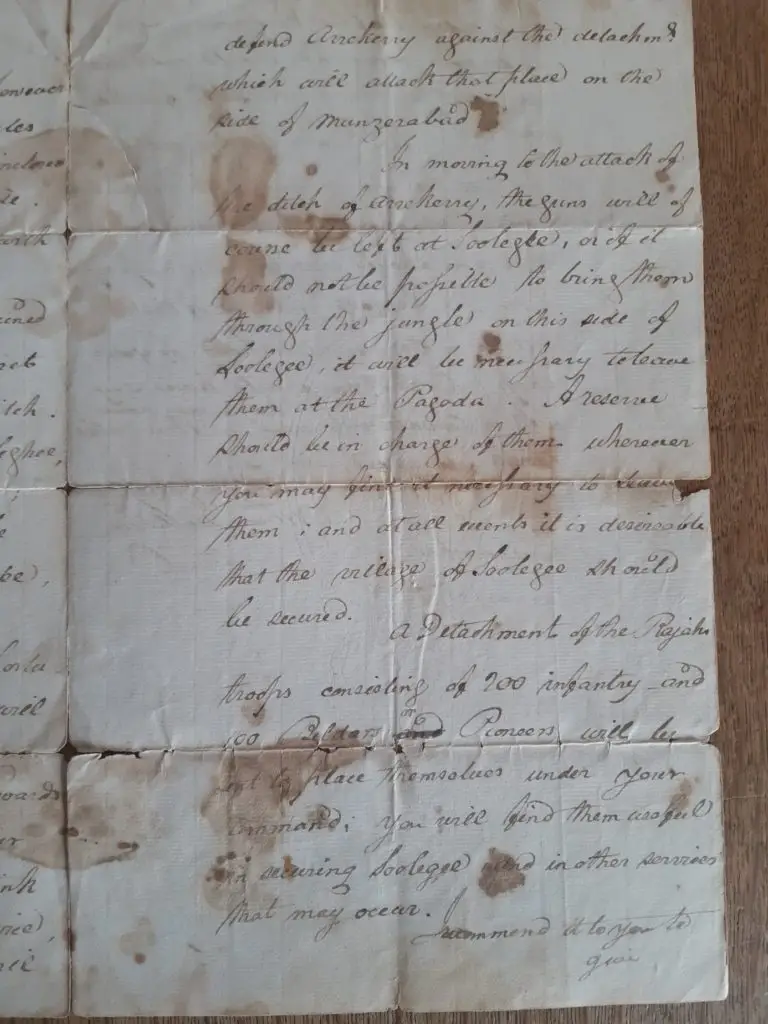 however
les
.
with
ined
ret
itch.
leghee,
;
e
be),
will
wards
ur
ink
defend Arrekerry against the detachmt.
which will attack that place on the
side of Munzerabad
In moving to the attack of
the ditch of Arrekerry, the guns will of
course be left at Soolegee, or if it
should not be possible to bring them
through the jungle on this side of
Soolegee, it will be necessary to leave
them at the Pagoda. A reserve
should be in charge of them wherever
you may find it necessary to leave
them; and at all events it is desireable
that the village of Soolegee should
be secured.
A Detachment of the Rajahs
troops consisting of 200 infantry and
100 Beldars or Pioneers will be
sent to place themselves under your
command; you will find them useful
in securing Soolegee and in other services
that may occur.
I recommend it to you to
give